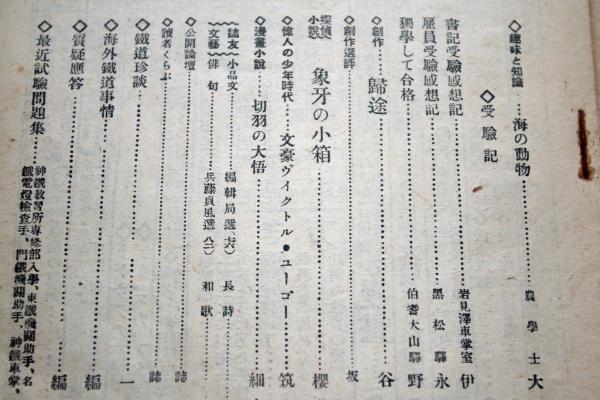 ◇趣味と知識……海の動物……農學士 大
◇受驗記
書記受驗感想記……岩見澤車掌室 伊
雇員受驗感想記……黑松驛 永
獨學して合格……伯耆大山驛 野
◇創作……歸途……谷
◇創作選評……坂
探偵小說 象牙の小箱……櫻
◇偉人の少年時代……文豪ヴィクトル・ユーゴー……筑
◇漫畫小說……切羽の大悟……細
誌友文藝 小品文……編輯局選(六) 長詩
俳句……兵藤貞風選(八二) 和歌
◇公開論壇……誌
◇讀者くらぶ……誌
◇鐵道珍談……一
◇海外鐵道事情……編
◇質疑應答……編
◇最近試驗問題集……
神鐵敎習所專修部入學、東鐵機關助手、名
鐵電燈檢査手、門鐵機關助手、神鐵車掌、